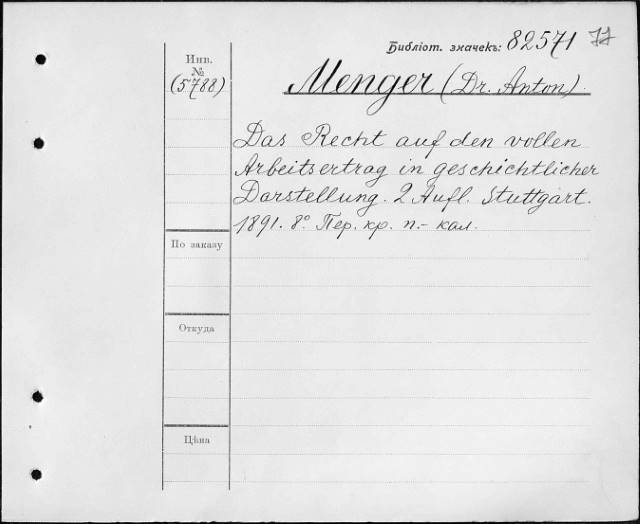 Библіот. значекъ: 82571
Инв.
№
(5788)
Menger (Dr. Anton).
Das Recht auf den vollen
Arbeitsertrag in geschichtlicher
Darstellung. 2 Aufl. Stuttgart.
1891. 8° Пер. кр. п.- кал.
По заказу
Откуда
Цѣна